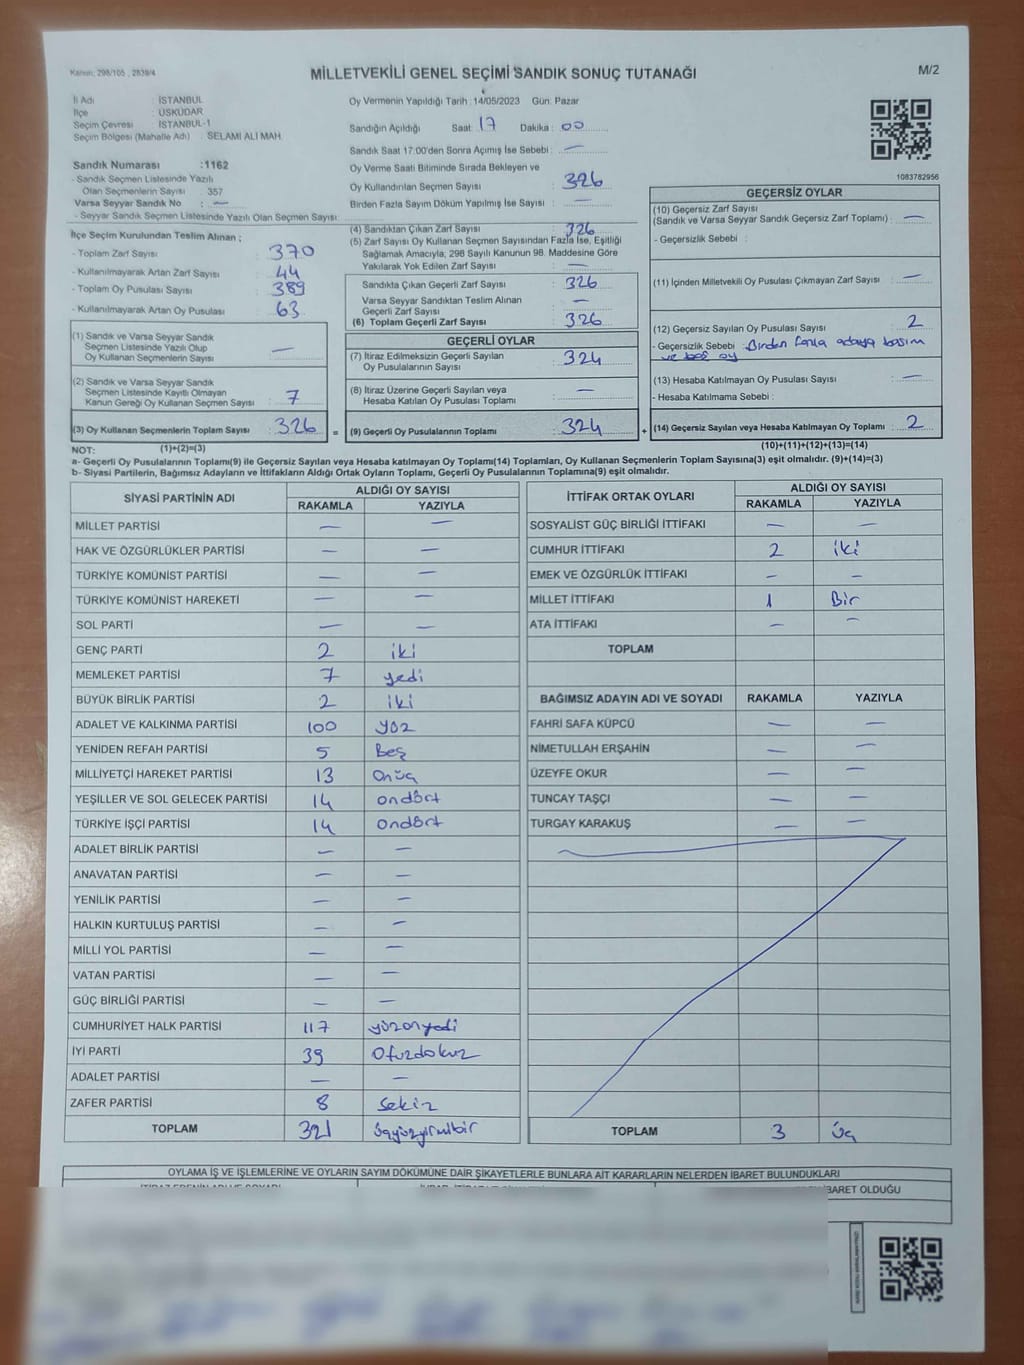 Kanun; 298/105 , 2839/4
MİLLETVEKİLİ GENEL SEÇİMİ SANDIK SONUÇ TUTANAĞI
M/2
İl Adı : İSTANBUL
İlçe : ÜSKÜDAR
Seçim Çevresi : İSTANBUL-1
Seçim Bölgesi (Mahalle Adı) : SELAMİ ALİ MAH.
Sandık Numarası : 1162
- Sandık Seçmen Listesinde Yazılı
Olan Seçmenlerin Sayısı : 357
Varsa Seyyar Sandık No : —
- Seyyar Sandık Seçmen Listesinde Yazılı Olan Seçmen Sayısı:
Oy Vermenin Yapıldığı Tarih : 14/05/2023 Gün: Pazar
Sandığın Açıldığı Saat: 17 Dakika : 00
Sandık Saat 17:00'den Sonra Açımış İse Sebebi : —
Oy Verme Saati Bitiminde Sırada Bekleyen ve
Oy Kullandırılan Seçmen Sayısı : 326
Birden Fazla Sayım Döküm Yapılmış İse Sayısı : —
1083782956
İlçe Seçim Kurulundan Teslim Alınan ;
- Toplam Zarf Sayısı : 370
- Kullanılmayarak Artan Zarf Sayısı : 44
- Toplam Oy Pusulası Sayısı : 389
- Kullanılmayarak Artan Oy Pusulası : 63
(1) Sandık ve Varsa Seyyar Sandık
Seçmen Listesinde Yazılı Olup
Oy Kullanan Seçmenlerin Sayısı : —
(2) Sandık ve Varsa Seyyar Sandık
Seçmen Listesinde Kayıtlı Olmayan
Kanun Gereği Oy Kullanan Seçmen Sayısı : 7
(3) Oy Kullanan Seçmenlerin Toplam Sayısı : 326 =
(4) Sandıktan Çıkan Zarf Sayısı : 326
(5) Zarf Sayısı Oy Kullanan Seçmen Sayısından Fazla İse, Eşitliği
Sağlamak Amacıyla; 298 Sayılı Kanunun 98. Maddesine Göre
Yakılarak Yok Edilen Zarf Sayısı : —
Sandıkta Çıkan Geçerli Zarf Sayısı : 326
Varsa Seyyar Sandıktan Teslim Alınan
Geçerli Zarf Sayısı : —
(6) Toplam Geçerli Zarf Sayısı : 326
GEÇERLİ OYLAR
(7) İtiraz Edilmeksizin Geçerli Sayılan
Oy Pusulalarının Sayısı : 324
(8) İtiraz Üzerine Geçerli Sayılan veya
Hesaba Katılan Oy Pusulası Toplamı : —
(9) Geçerli Oy Pusulalarının Toplamı : 324 +
GEÇERSİZ OYLAR
(10) Geçersiz Zarf Sayısı
(Sandık ve Varsa Seyyar Sandık Geçersiz Zarf Toplamı) : —
- Geçersizlik Sebebi :
(11) İçinden Milletvekili Oy Pusulası Çıkmayan Zarf Sayısı : —
(12) Geçersiz Sayılan Oy Pusulası Sayısı : 2
- Geçersizlik Sebebi : Birden fazla adaya basım
ve boş oy
(13) Hesaba Katılmayan Oy Pusulası Sayısı : —
- Hesaba Katılmama Sebebi :
(14) Geçersiz Sayılan veya Hesaba Katılmayan Oy Toplamı : 2
NOT: (1)+(2)=(3) (10)+(11)+(12)+(13)=(14)
a- Geçerli Oy Pusulalarının Toplamı(9) ile Geçersiz Sayılan veya Hesaba katılmayan Oy Toplamı(14) Toplamları, Oy Kullanan Seçmenlerin Toplam Sayısına(3) eşit olmalıdır. (9)+(14)=(3)
b- Siyasi Partilerin, Bağımsız Adayların ve İttifakların Aldığı Ortak Oyların Toplamı, Geçerli Oy Pusulalarının Toplamına(9) eşit olmalıdır.
SİYASİ PARTİNİN ADI ALDIĞI OY SAYISI
RAKAMLA YAZIYLA
MİLLET PARTİSİ — —
HAK VE ÖZGÜRLÜKLER PARTİSİ — —
TÜRKİYE KOMÜNİST PARTİSİ — —
TÜRKİYE KOMÜNİST HAREKETİ — —
SOL PARTİ — —
GENÇ PARTİ 2 iki
MEMLEKET PARTİSİ 7 yedi
BÜYÜK BİRLİK PARTİSİ 2 iki
ADALET VE KALKINMA PARTİSİ 100 yüz
YENİDEN REFAH PARTİSİ 5 Beş
MİLLİYETÇİ HAREKET PARTİSİ 13 Onüç
YEŞİLLER VE SOL GELECEK PARTİSİ 14 ondört
TÜRKİYE İŞÇİ PARTİSİ 14 ondört
ADALET BİRLİK PARTİSİ — —
ANAVATAN PARTİSİ — —
YENİLİK PARTİSİ — —
HALKIN KURTULUŞ PARTİSİ — —
MİLLİ YOL PARTİSİ — —
VATAN PARTİSİ — —
GÜÇ BİRLİĞİ PARTİSİ — —
CUMHURİYET HALK PARTİSİ 117 yüzonyedi
İYİ PARTİ 39 Otuzdokuz
ADALET PARTİSİ — —
ZAFER PARTİSİ 8 sekiz
TOPLAM 321 üçyüzyirmibir
İTTİFAK ORTAK OYLARI ALDIĞI OY SAYISI
RAKAMLA YAZIYLA
SOSYALİST GÜÇ BİRLİĞİ İTTİFAKI — —
CUMHUR İTTİFAKI 2 iki
EMEK VE ÖZGÜRLÜK İTTİFAKI — —
MİLLET İTTİFAKI 1 Bir
ATA İTTİFAKI — —
TOPLAM
BAĞIMSIZ ADAYIN ADI VE SOYADI RAKAMLA YAZIYLA
FAHRİ SAFA KÜPCÜ — —
NİMETULLAH ERŞAHİN — —
ÜZEYFE OKUR — —
TUNCAY TAŞÇI — —
TURGAY KARAKUŞ — —
TOPLAM 3 üç
OYLAMA İŞ VE İŞLEMLERİNE VE OYLARIN SAYIM DÖKÜMÜNE DAİR ŞİKAYETLERLE BUNLARA AİT KARARLARIN NELERDEN İBARET BULUNDUKLARI
BARET OLDUĞU